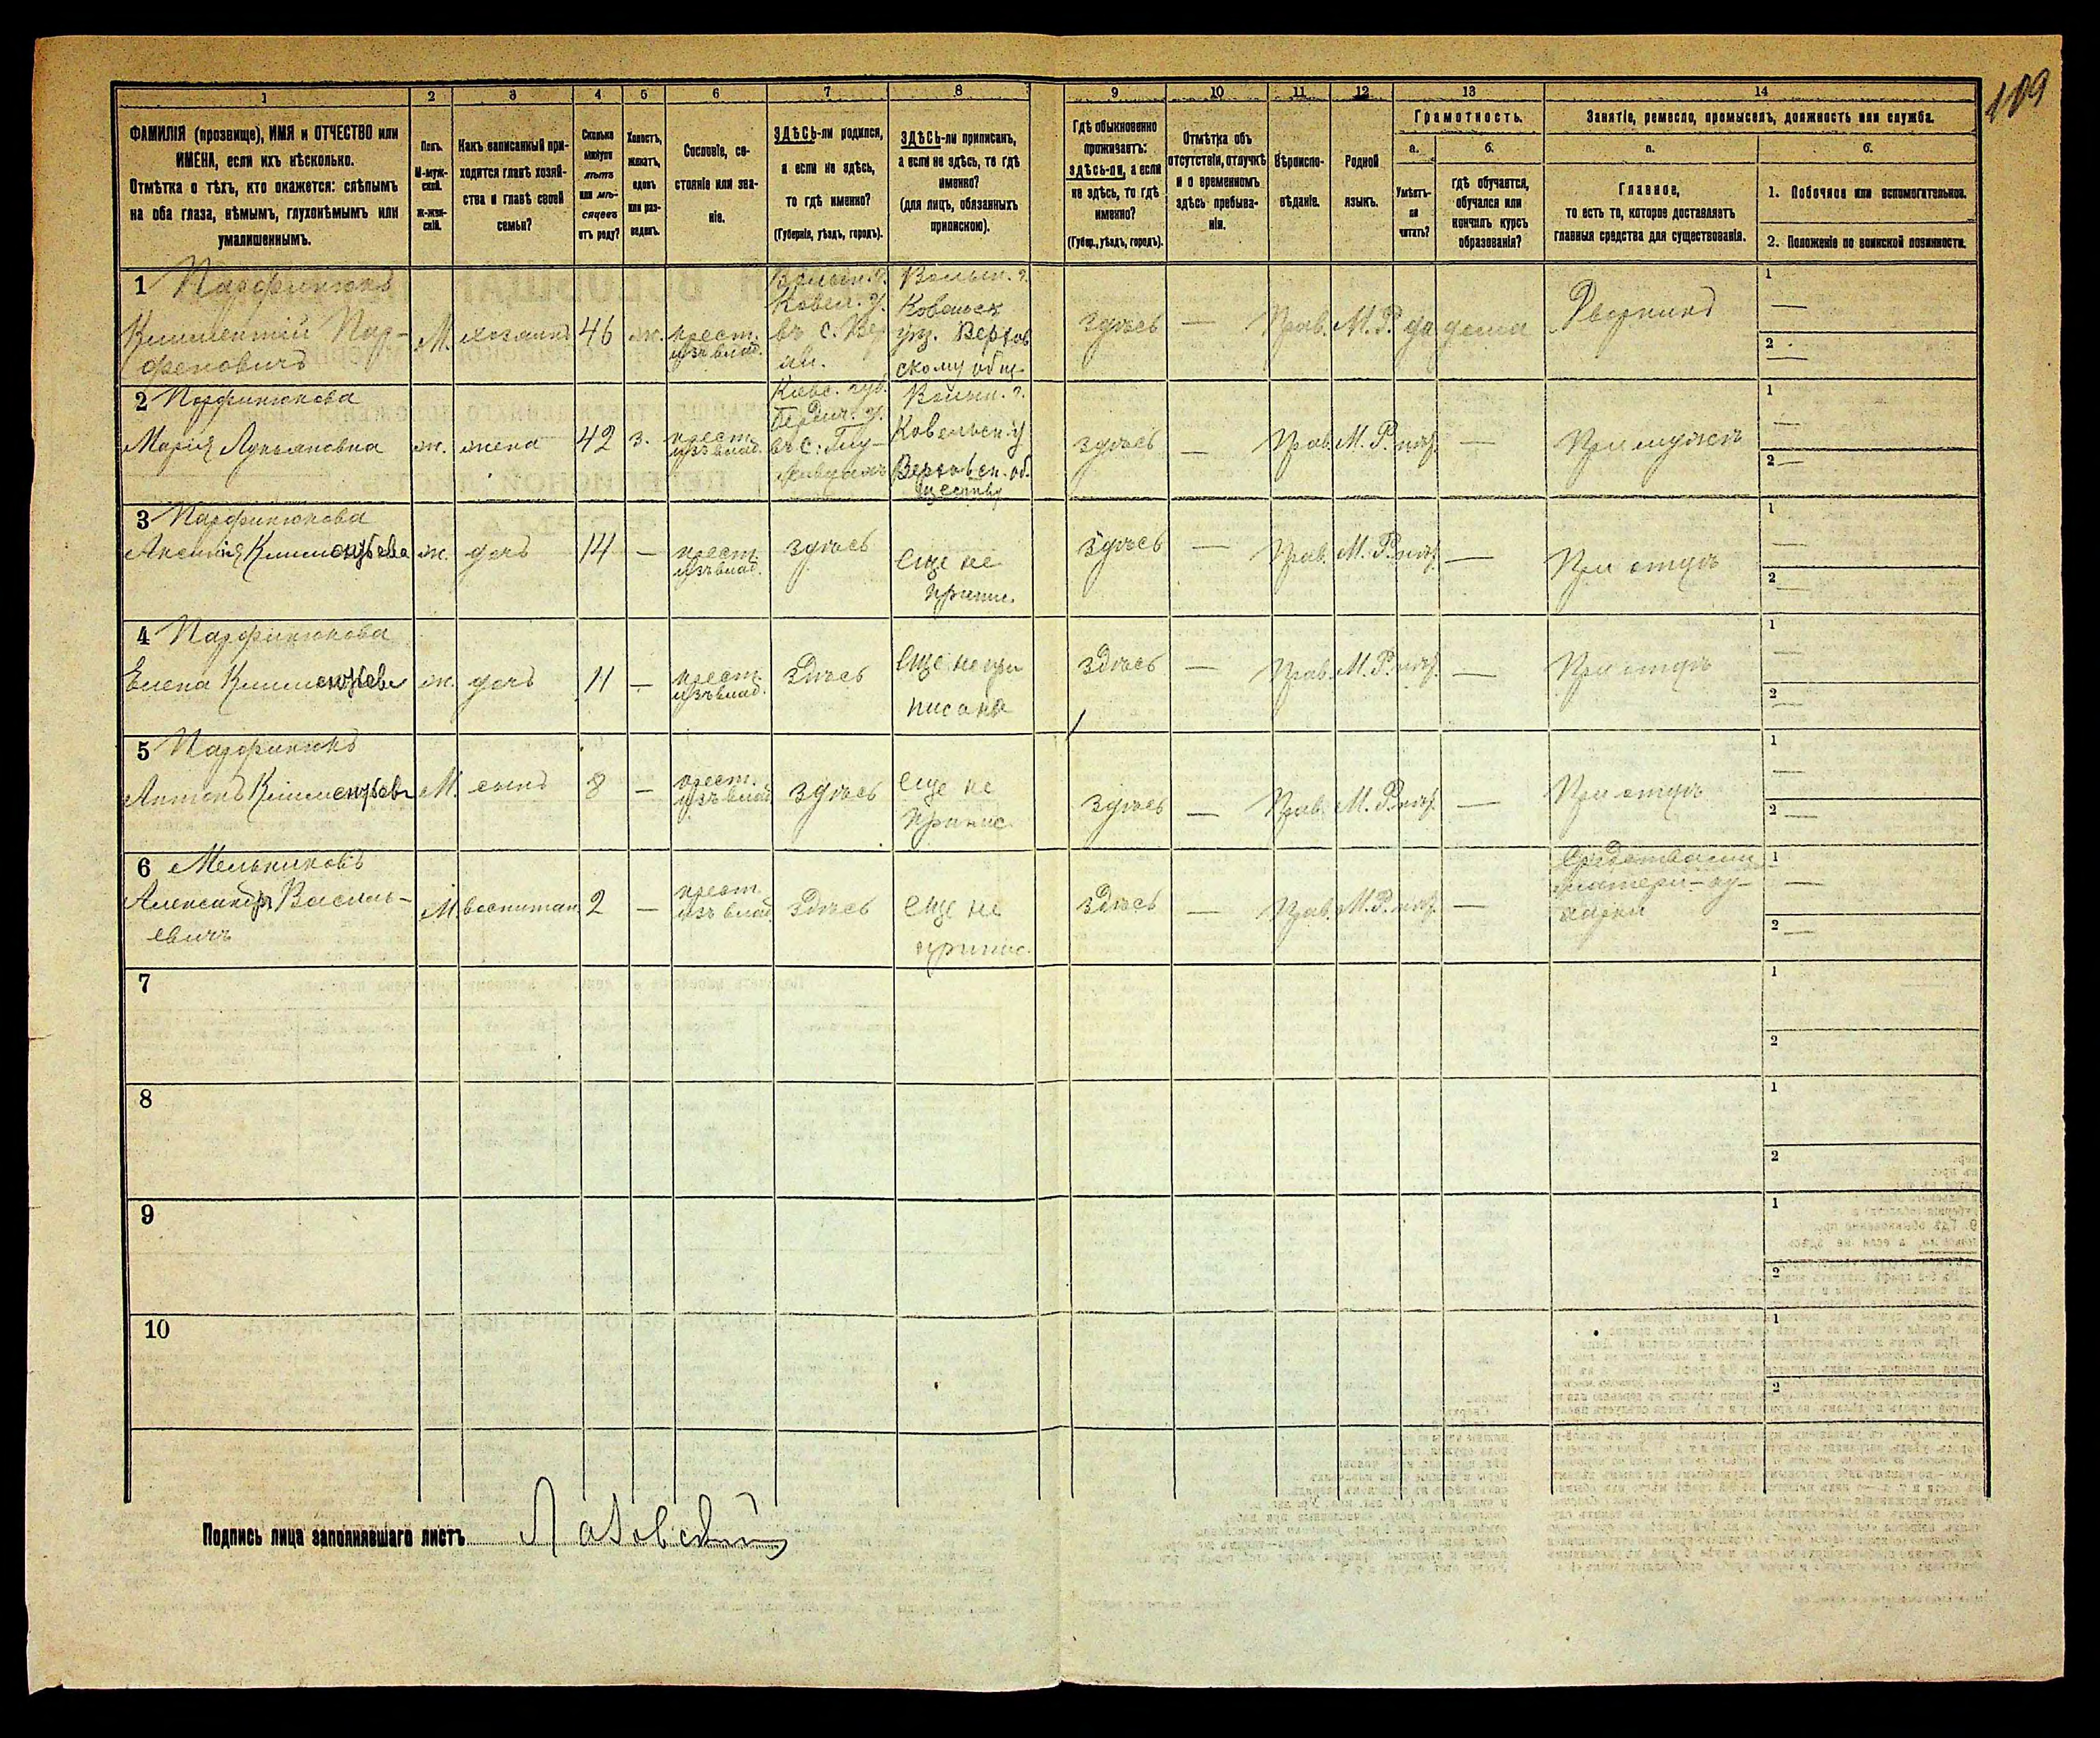 109
1 2 3 4 5 6 7 8 9 10 11 12 13 14
ФАМИЛІЯ (прозвище), ИМЯ и ОТЧЕСТВО или
ИМЕНА, если ихъ нѣсколько.
Отмѣтка о тѣхъ, кто окажется: слѣпымъ
на оба глаза, нѣмымъ, глухонѣмымъ или
умалишеннымъ.
Полъ.
М-муж-
ской.
ж-жен-
скій.
Какъ записанный при-
ходится главѣ хозяй-
ства и главѣ своей
семьи?
Сколько
минуло
лѣтъ
или мѣ-
сяцевъ
отъ роду?
Холостъ,
женатъ,
вдовъ
или раз-
веденъ.
Сословіе, со-
стояніе или зва-
ніе.
ЗДѢСЬ-ли родился,
а если не здѣсь,
то гдѣ именно?
(Губернія, уѣздъ, городъ).
ЗДѢСЬ-ли приписанъ,
а если не здѣсь, то гдѣ
именно?
(для лицъ, обязанныхъ
припискою).
Гдѣ обыкновенно
проживаетъ:
здѣсь-ли, а если
не здѣсь, то гдѣ
именно?
(Губер., уѣздъ, городъ).
Отмѣтка объ
отсутствіи, отлучкѣ
и о временномъ
здѣсь пребыва-
ніи.
Вѣроиспо-
вѣданіе.
Родной
языкъ.
Грамотность.
а.
Умѣетъ-
ли
читать?
б.
гдѣ обучается,
обучался или
кончилъ курсъ
образованія?
Занятіе, ремесло, промыселъ, должность или служба.
а.
Главное,
то есть то, которое доставляетъ
главныя средства для существованія.
б.
1. Побочное или вспомогательное.
2. Положеніе по воинской повинности.
1 Парфинюкъ
Климентій Пар-
феновичъ
М. хозяинъ 46 ж. крест.
изъ влад.
Волын. г.
Ковел. у.
въ с. Вер
Волын. г.
Ковельск
уѣз. Верхов
скому общ.
здѣсь — Прав. М. Р. да дома Дворникъ
1 —
2 —
2 Парфинюкова
Марія Лукьяновна ж. жена 42 з. крест.
изъ влад.
Кіевс. губ.
Бердич. у.
въ с.
Волын. г.
Ковельск. у
Верховск. об.
ществу
здѣсь — Прав. М. Р. нѣт. — При мужѣ
1 —
2 —
3 Парфинюкова
Аксинія Климентьева ж. дочь 14 — крест.
изъ влад.
здѣсь Еще не
припис.
здѣсь — Прав. М. Р. нѣт. — При отцѣ
1 —
2 —
4 Парфинюкова
Елена Климентьева ж. дочь 11 — крест.
изъ влад.
здѣсь Еще не при
писана
здѣсь — Прав. М. Р. нѣт. — При отцѣ
1 —
2 —
5 Парфинюкъ
Антонъ Климентьев М. сынъ 8 — крест.
изъ влад.
здѣсь еще не
припис
здѣсь — Прав. М. Р. нѣт. — При отцѣ
1 —
2 —
6 Мельниковъ
Александръ Василь-
евичъ
М. воспитан. 2 — крест.
изъ влад.
здѣсь еще не
припис.
здѣсь — Прав. М. Р. нѣт. — Средствами
матери — ку-
харки
1 —
2 —
7
1
2
8
1
2
9
1
2
10
1
2
Подпись лица заполнявшаго листъ